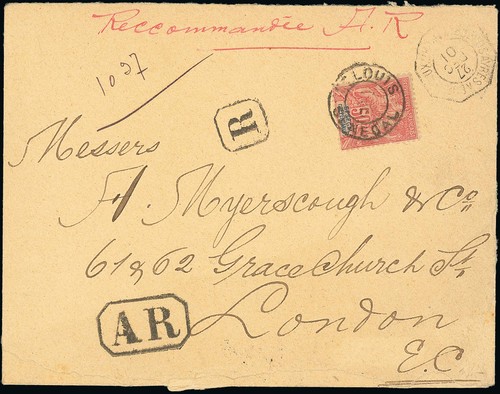 Reccommandée A.R
1037
R
ST LOUIS
SENEGAL
50
27
01
Messers
A. Myerscough & Co
61 & 62 GraceChurch St.
London
E.C.
AR